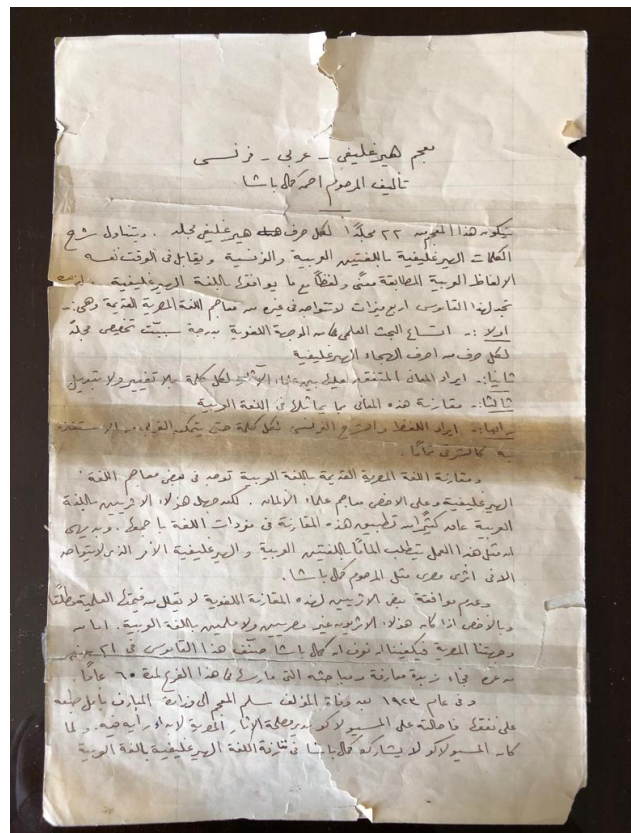 معجم هيرغليفى - عربى - فرنسى
تأليف المرحوم احمد كمال باشا
يتكون هذا المعجم من ٢٢ مجلدًا لكل حرف هيرغليفى مجلد . ويتناول شرح
الكلمات الهيرغليفية باللغتين العربية والفرنسية ويقابل فى الوقت نفسه
الالفاظ العربية المطابقة معنًى ولفظًا مع ما يوافقها باللغة الهيرغليفية .
تجد لهذا القاموس اربع ميزات لا تتواجد فى غيره من معاجم اللغة المصرية القديمة وهى :-
اولا :- اتساع البحث العلمى من الوجهة اللغوية بدرجة سببت تخصيص مجلد
لكل حرف من احرف الهجاء الهيرغليفية
ثانيا :- ايراد المعانى المتفق عليها بين علماء الآثار لكل كلمة بلا تغيير ولا تبديل
ثالثا :- مقارنة هذه المعانى بما يماثلها فى اللغة العربية
رابعا :- ايراد اللفظ والشرح الفرنسى لكل كلمة حتى يتمكن الغربى من الاستفادة
به كالشرقى تمامًا .
ومقارنة اللغة المصرية القديمة باللغة العربية توجد فى بعض معاجم اللغة
الهيرغليفية وعلى الاخص معاجم علماء الالمان . لكن جهل هؤلاء الاثريين باللغة
العربية عاقه كثيرًا من تطبيق هذه المقارنة فى مفردات اللغة باجمعها . وبديهى
ان مثل هذا العمل يتطلب المامًا باللغتين العربية والهيرغليفية الأمر الذى لا يتواجد
الا فى اثرى مصرى مثل المرحوم كمال باشا .
وعدم موافقة بعض الاثريين لهذه المقارنة اللغوية لا يقلل من قيمتها العلمية مطلقًا
وبالأخص اذا كان هؤلاء الاثريون غير مصريين ولا ملمين باللغة العربية . اما من
وجهتنا المصرية فيكفينا ان نعرف ان كمال باشا صنف هذا القاموس فى ٢١
من عمره فجاء زبدة معارفه ومباحثه التى مارسها فى هذا الفرع لمدة ٦٠ عامًا
وفى عام ١٩٢٣ بعد وفاة المؤلف سلم المعجم الى وزارة المعارف بأمل طبعه
على نفقتها فاحالته على المسيو لاكو مدير مصلحة الآثار المصرية لابداء رأيه فيه . ولما
كان المسيو لاكو لا يشارك كمال باشا فى مقارنة اللغة الهيرغليفية باللغة العربية